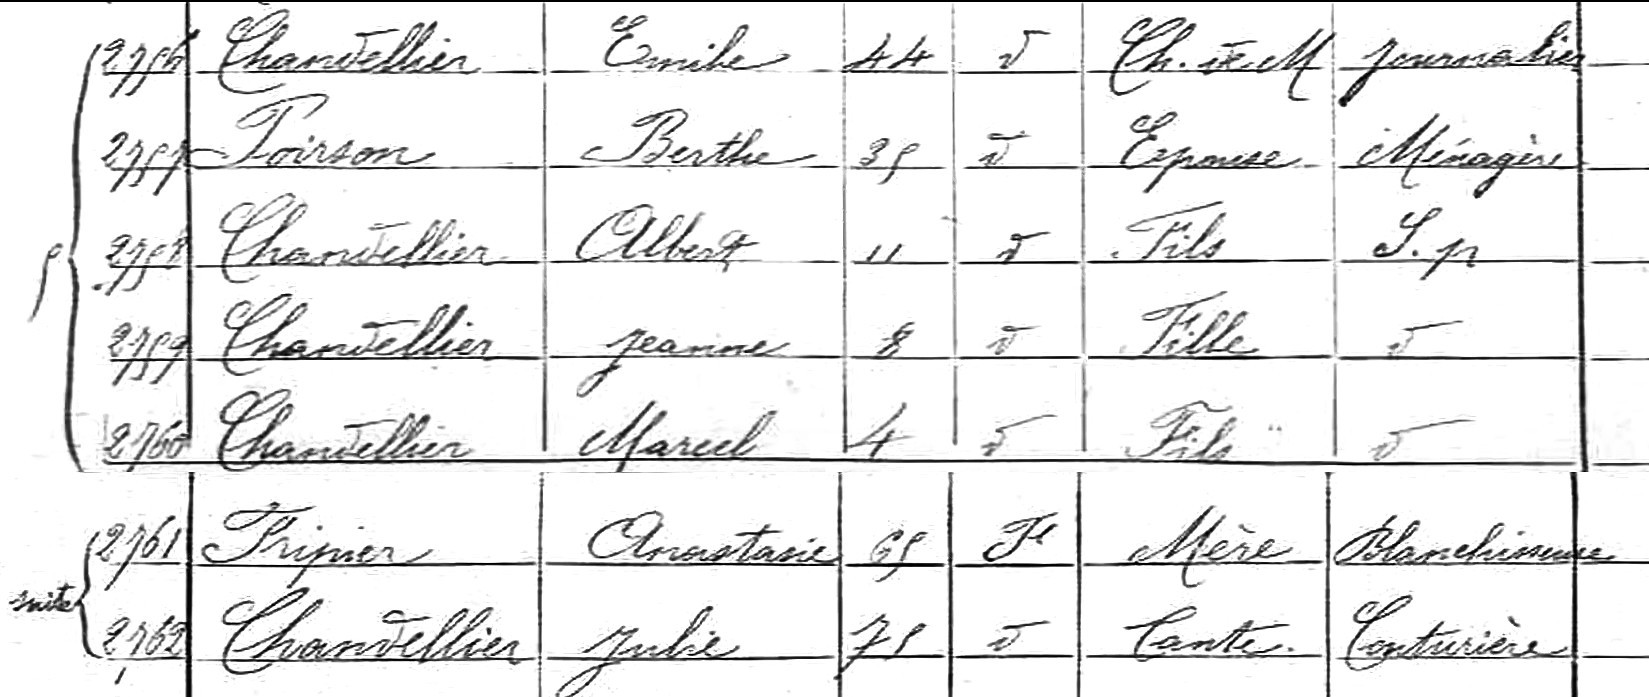 2756 Chandellier Emile 44 d Ch. de M journalier
2757 Poirson Berthe 35 d Epouse Ménagère
5 2758 Chandellier Albert 11 d Fils S. p
2759 Chandellier Jeanne 8 d Fille d
2760 Chandellier Marcel 4 d Fils d
2761 Fripier Anastasie 65 Fe Mère Blanchisseuse
suite 2762 Chandellier Julie 75 d Tante. Couturière